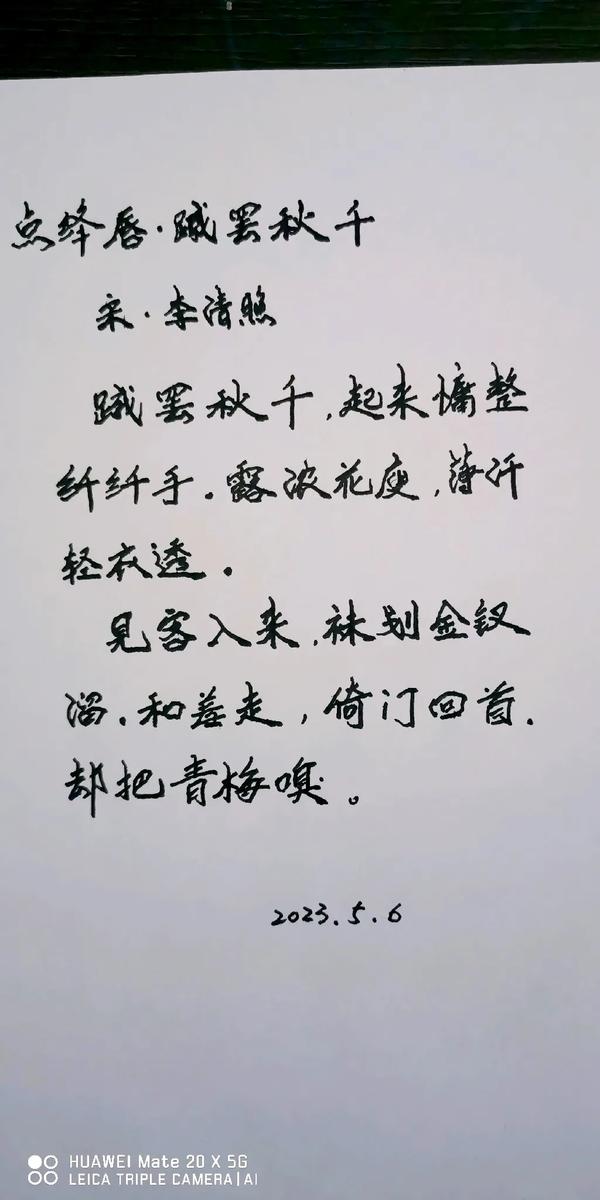 点绛唇·蹴罢秋千
宋·李清照
蹴罢秋千,起来慵整
纤纤手。露浓花瘦,薄汗
轻衣透。
见客入来,袜刬金钗
溜。和羞走,倚门回首.
却把青梅嗅。
2023.5.6
HUAWEI Mate 20 X 5G
LEICA TRIPLE CAMERA | AI